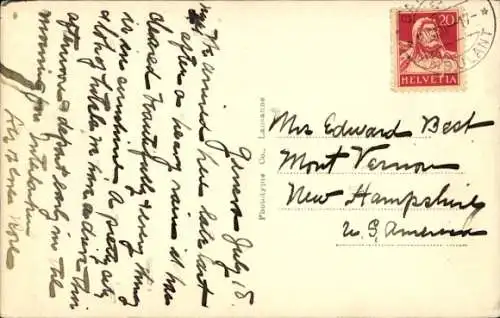 Geneva July 18.
We arrived here late last
night after a heavy rain it has
cleared beautifully & every thing
is in sunshine. A pretty city
along the lake
afternoon depart early in the
morning for Interlaken
Phototypie Co., Lausanne
20
HELVETIA
Mrs Edward Best
Mont Vernon
New Hampshire
U. S. America